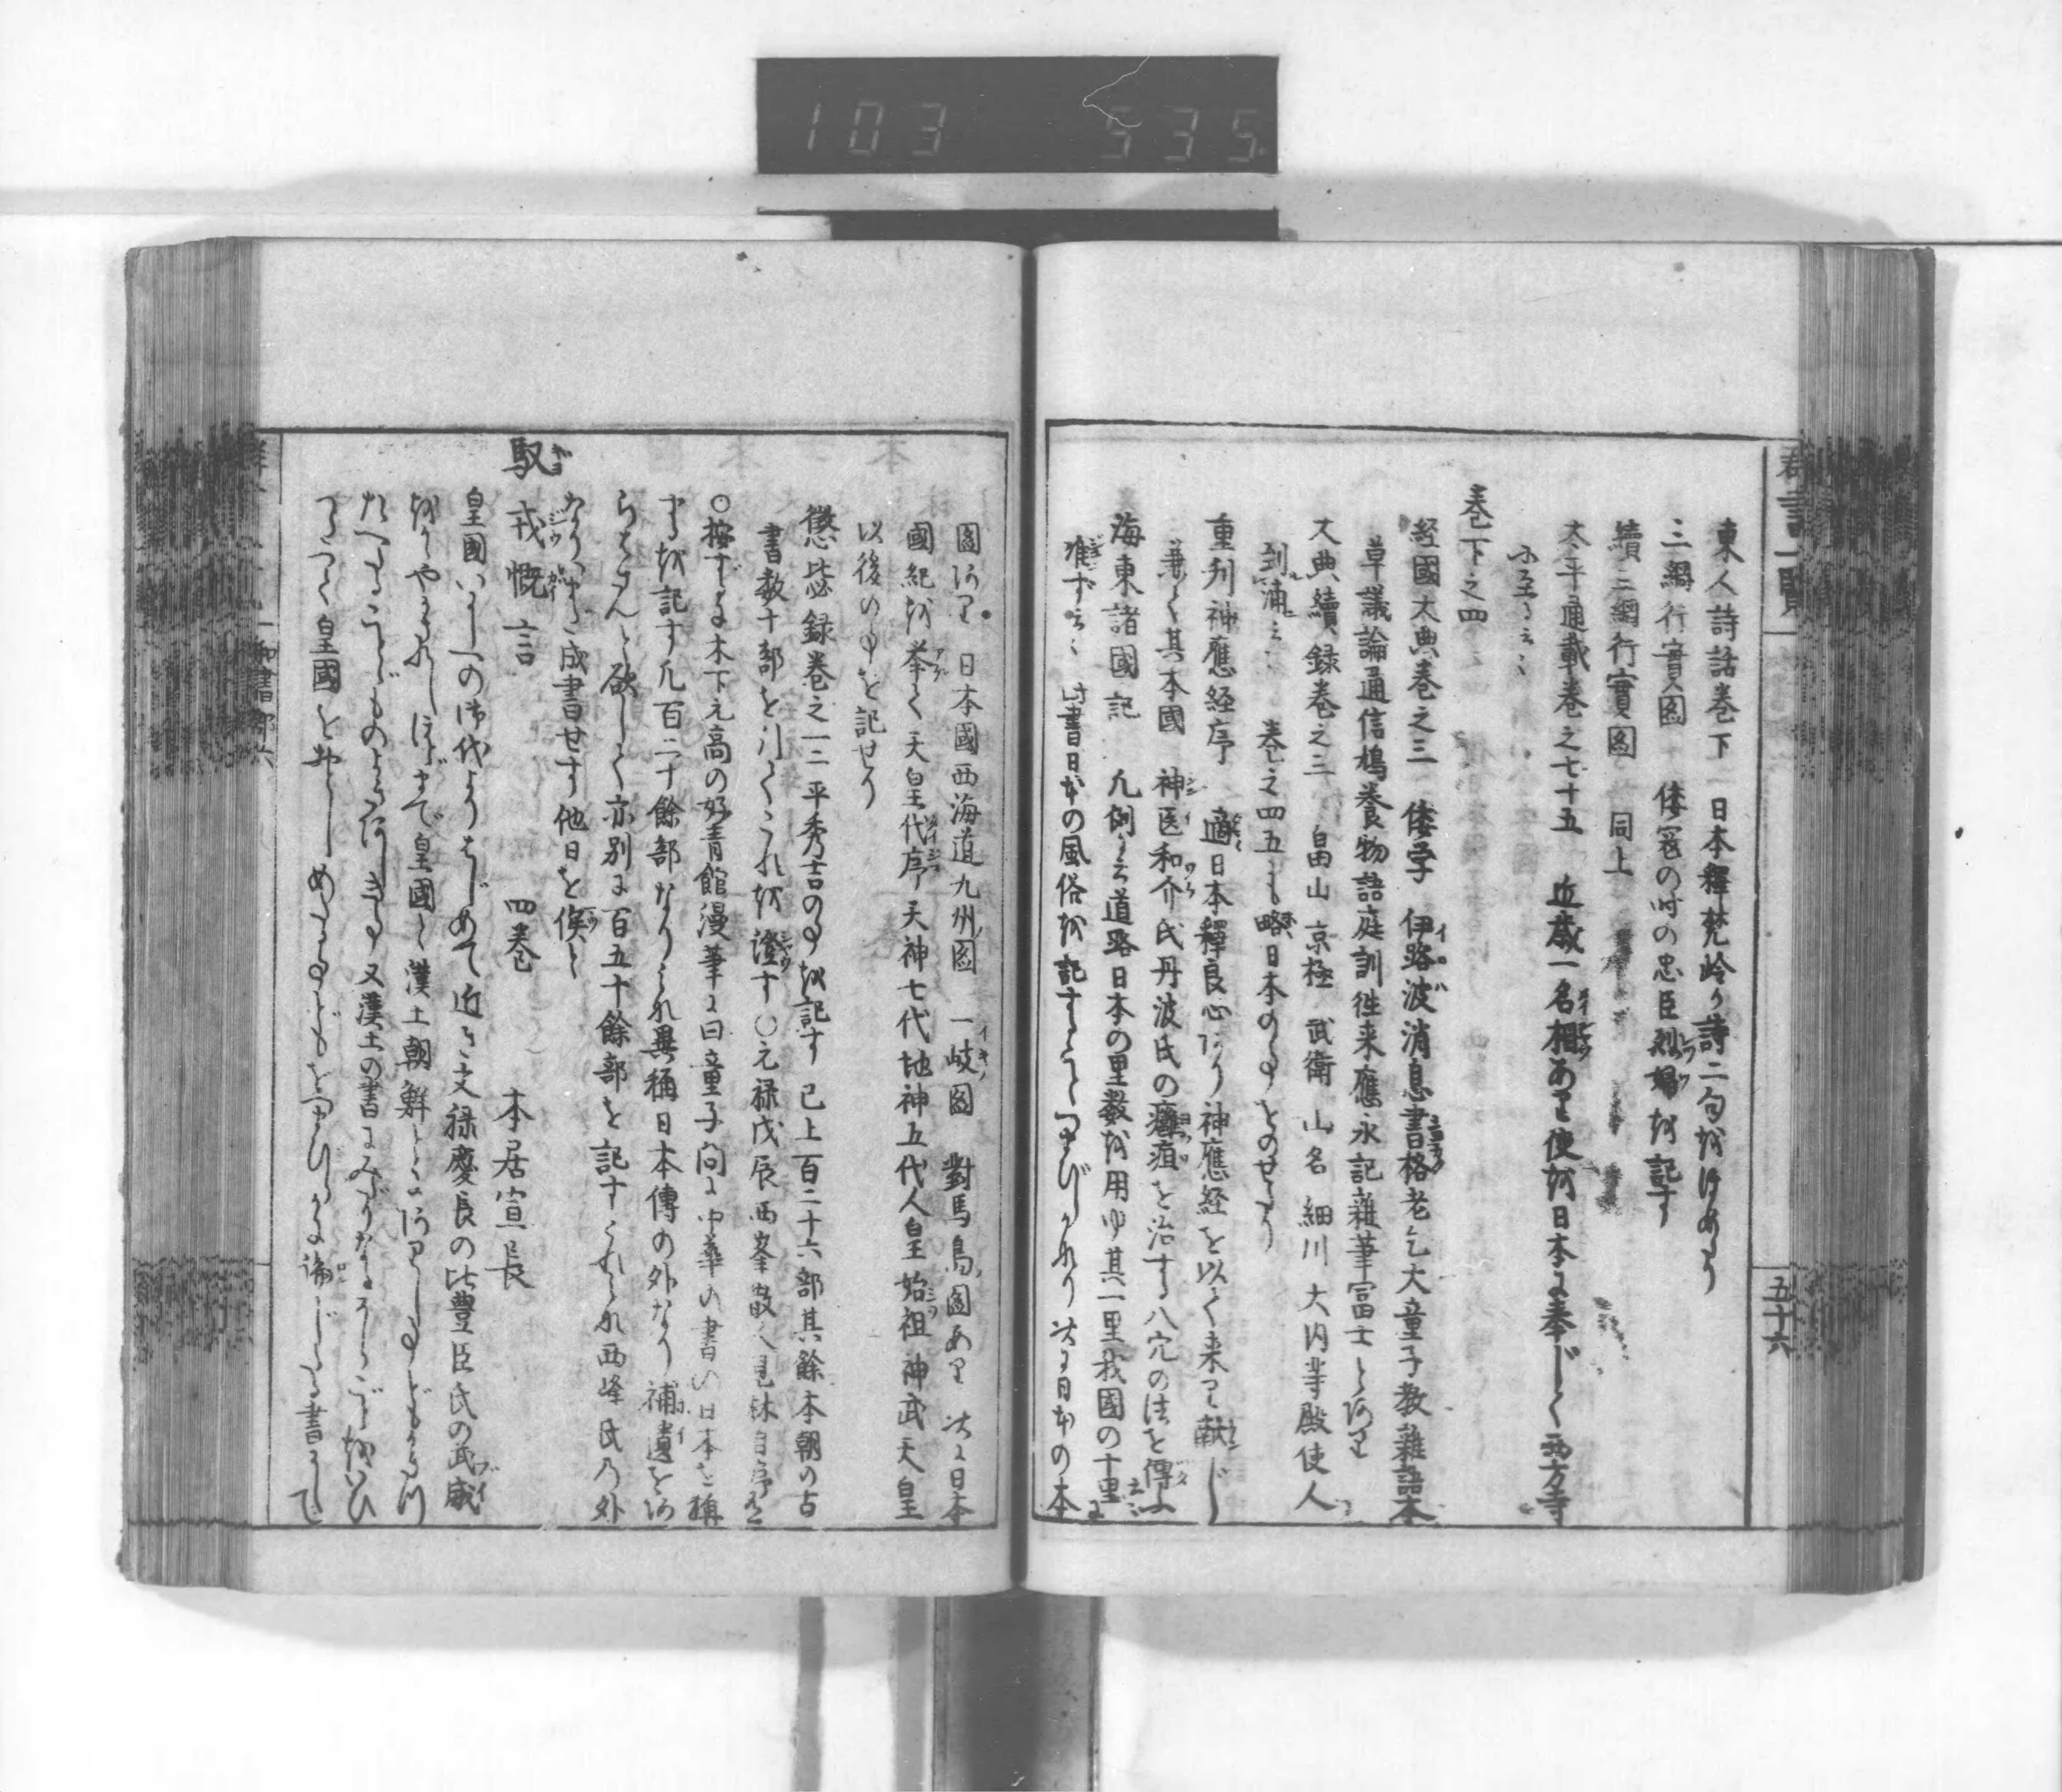 103 535
群書一覧
五十六
東人詩話巻下 日本釋梵岭カ詩二句をほめたり
三綱行實圖 倭寇の時の忠臣烈婦を記す
續三綱行實圖 同上
太平通載巻之七十五 近歳一名相あり使を日本に奉じて西方寺
に至る云々
巻下之四
経國大典巻之三 倭学 伊路波 消息 書格 老乞大 童子教 雜語 本
草 議論 通信 鳩養物語 庭訓徃来 應永記 雜筆 冨士とあり
大典續録巻之三 畠山 京極 武衛 山名 細川 大内等殿使人
到浦云々 巻之四五も略日本の事をのせたり
重刋神應経序 適日本釋良心あり神應経を以て来りて献じ
兼て其本國 神医和介氏丹波氏の癰疽を治する八穴の法を傳ふ云々
海東諸國記 凡例ニ云道路日本の里数を用ゆ其一里我國の十里に
准ず云々 此書日本の風俗を記すことつまびらかなり 次に日本の本
圖あり 日本國西海道九州ノ圖 一岐ノ圖 對馬島ノ圖あり 次に日本
國紀を挙て天皇代序 天神七代 地神五代 人皇始祖 神武天皇
以後の事を記せり
懲毖録巻之一二 平秀吉の事を記す 已上一百二十六部其餘本朝の古
書数十部を引てこれを證す ○元禄戊辰西峯散人見林自序有
○按ずるに木下元高の好青館漫筆に曰童子問に中華の書の日本を稱
するを記す凡百二十餘部なりこれ異稱日本傳の外なり補遺をあ
らはさんと欲して亦別に百五十餘部を記すこれこれ西峰氏乃外
なりいまだ成書せず他日を俟と
馭戎慨言 四巻 本居宣長
皇國いにしへの御代よりはじめて近き文禄慶長の比豊臣氏の武威
をかゝやかされしほどまで皇國と漢土朝鮮とにありし事どもかつ
たへたることどものよしあしき事又漢土の書にみだりなるそらごとをいひ
つらつて皇國をおとしめたる事どもをつまびらかに論じたる書にして